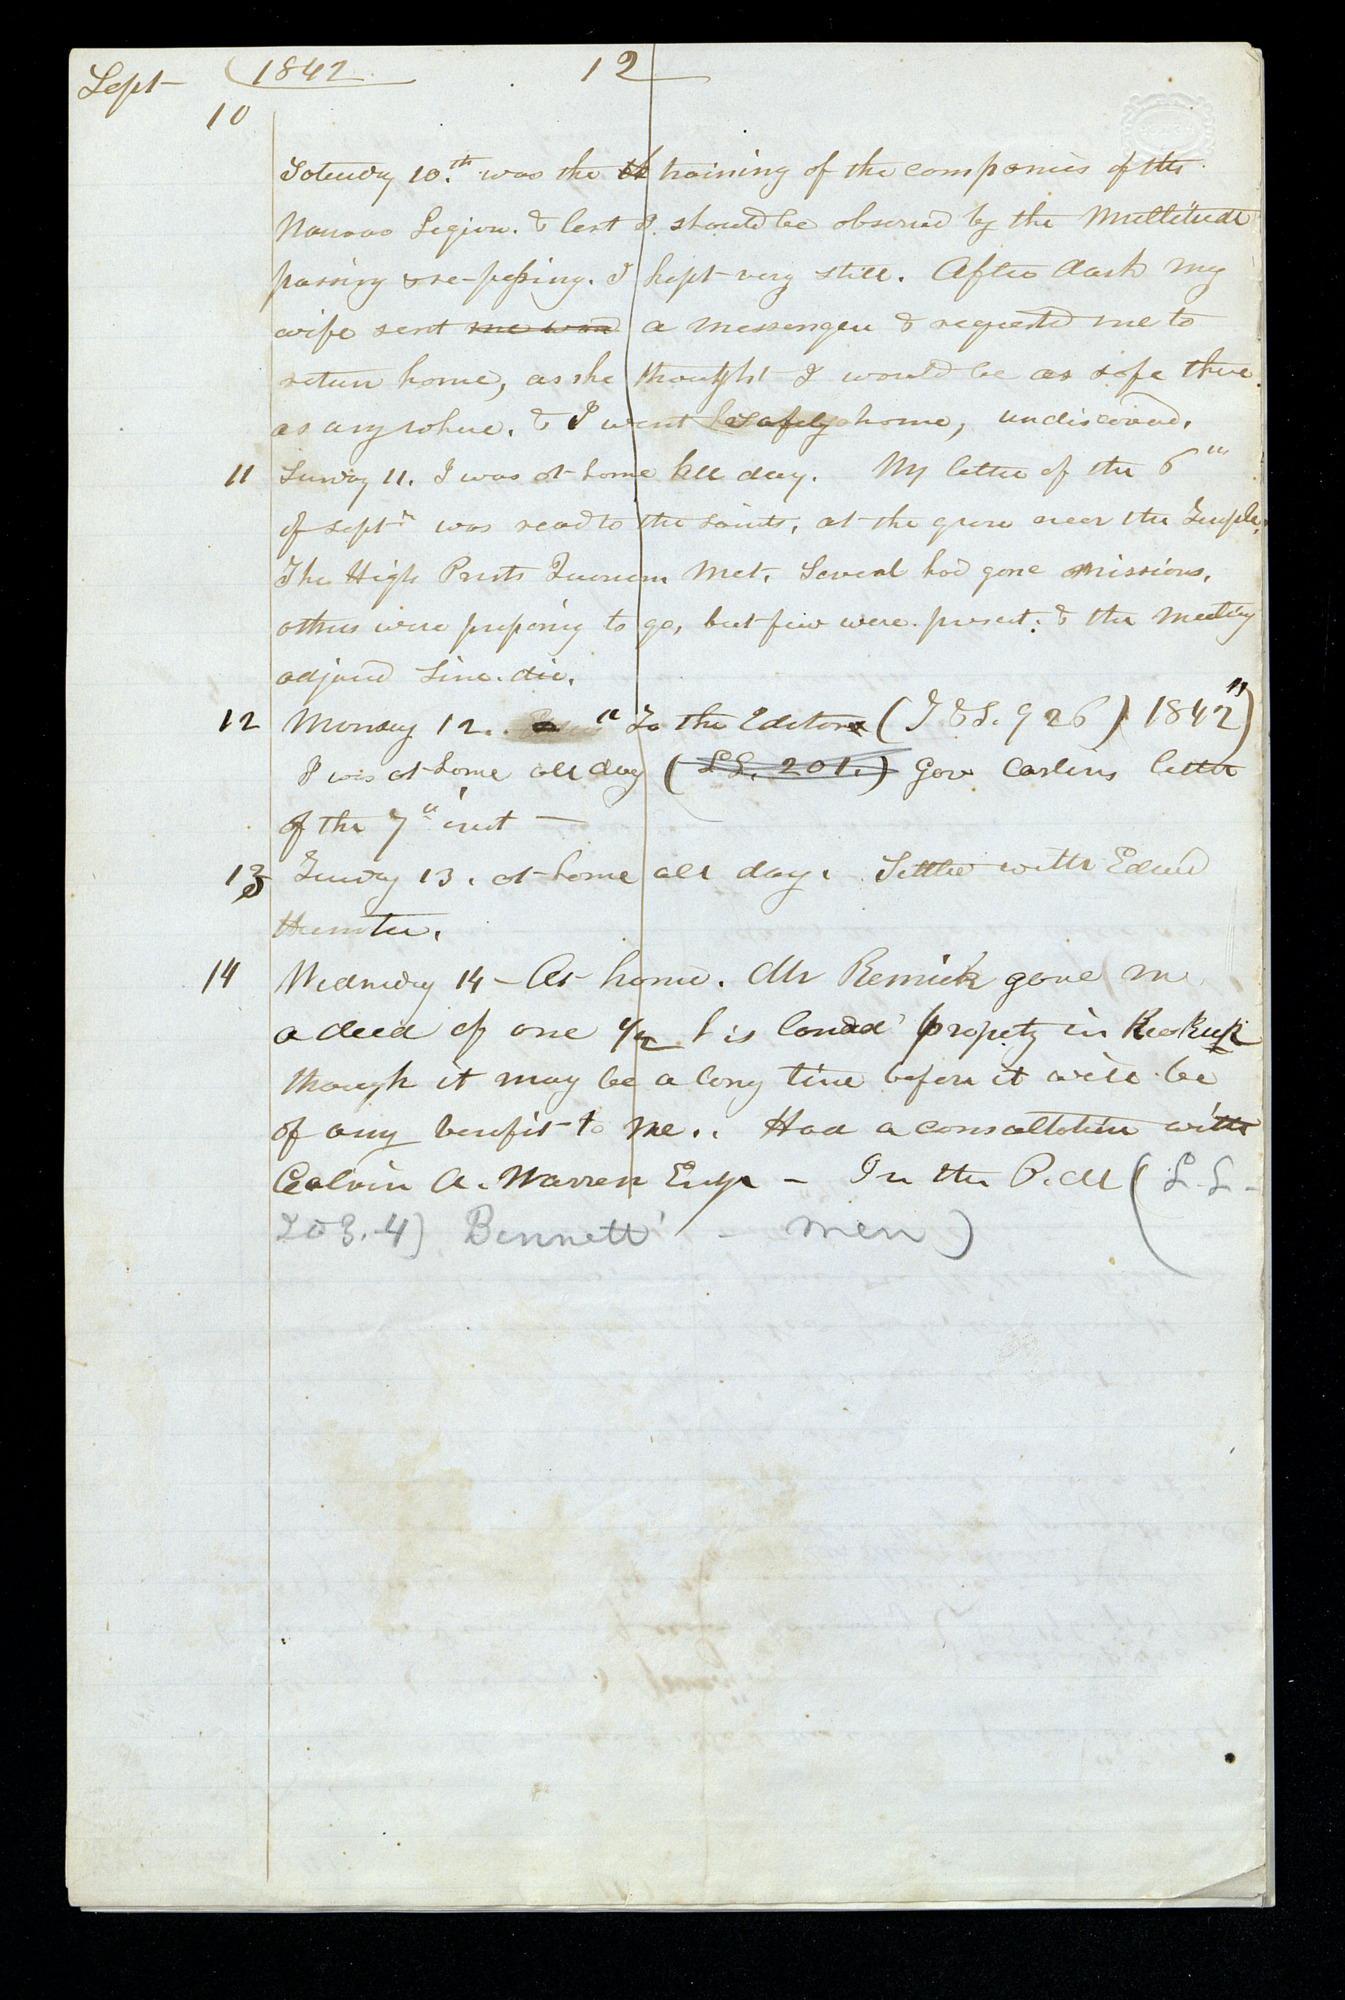 Sept 1842 12
10
Saturday 10.th was the training of the companies of the
Nauvoo Legion. & lest I. should be observed by the Multitude
passing & re-passing. I kept very still. After dark my
wife sent me word a messenger & requested me to
return home, as she thought I would be as safe there
as any where. & I went safely home, undiscovered.
11 Sunday 11. I was at home all day. My letter of the 6th
of Septr was read to the saints, at the grove near the Temple.
The High Priests Quorum Met. Several had gone missions,
others were preparing to go, but few were present. & the meeting
adjourned Sine. die.
12 Monday 12. "To the Editor (T & S. 926) 1842")
I was at home all day (L.L. 201.) Gov Carlins letter
of the 7th inst —
13 Tuesday 13. at home all day. Settled with Edward
Hunter.
14 Wednesday 14 – At home. Mr Remick gave m
a deed of one 1/2 his landed property in Keokuk
though it may be a long time before it will be
of any benefit to me.. Had a consultation with
Calvin A. Warren Esqr – In the P.M (L.L–
203.4) Bennett – men)